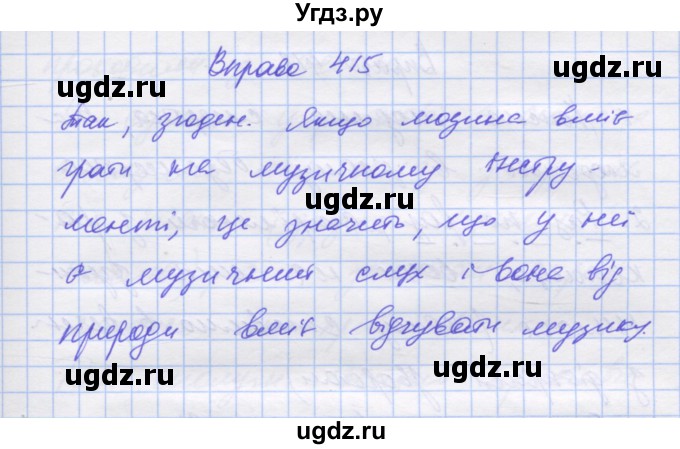 Угдз.ру
Вправа 415
ugdz.ru ugdz.ru
Так, згоден. Якщо людина вміє
грати на музичному інстру-
ugdz.ru
менті, це значить, що у неї
є музичний слух і вона від
ugdz.ru ugdz.ru
природи вміє відчувати музику.
ugdz.ru ugdz.ru
ugdz.ru